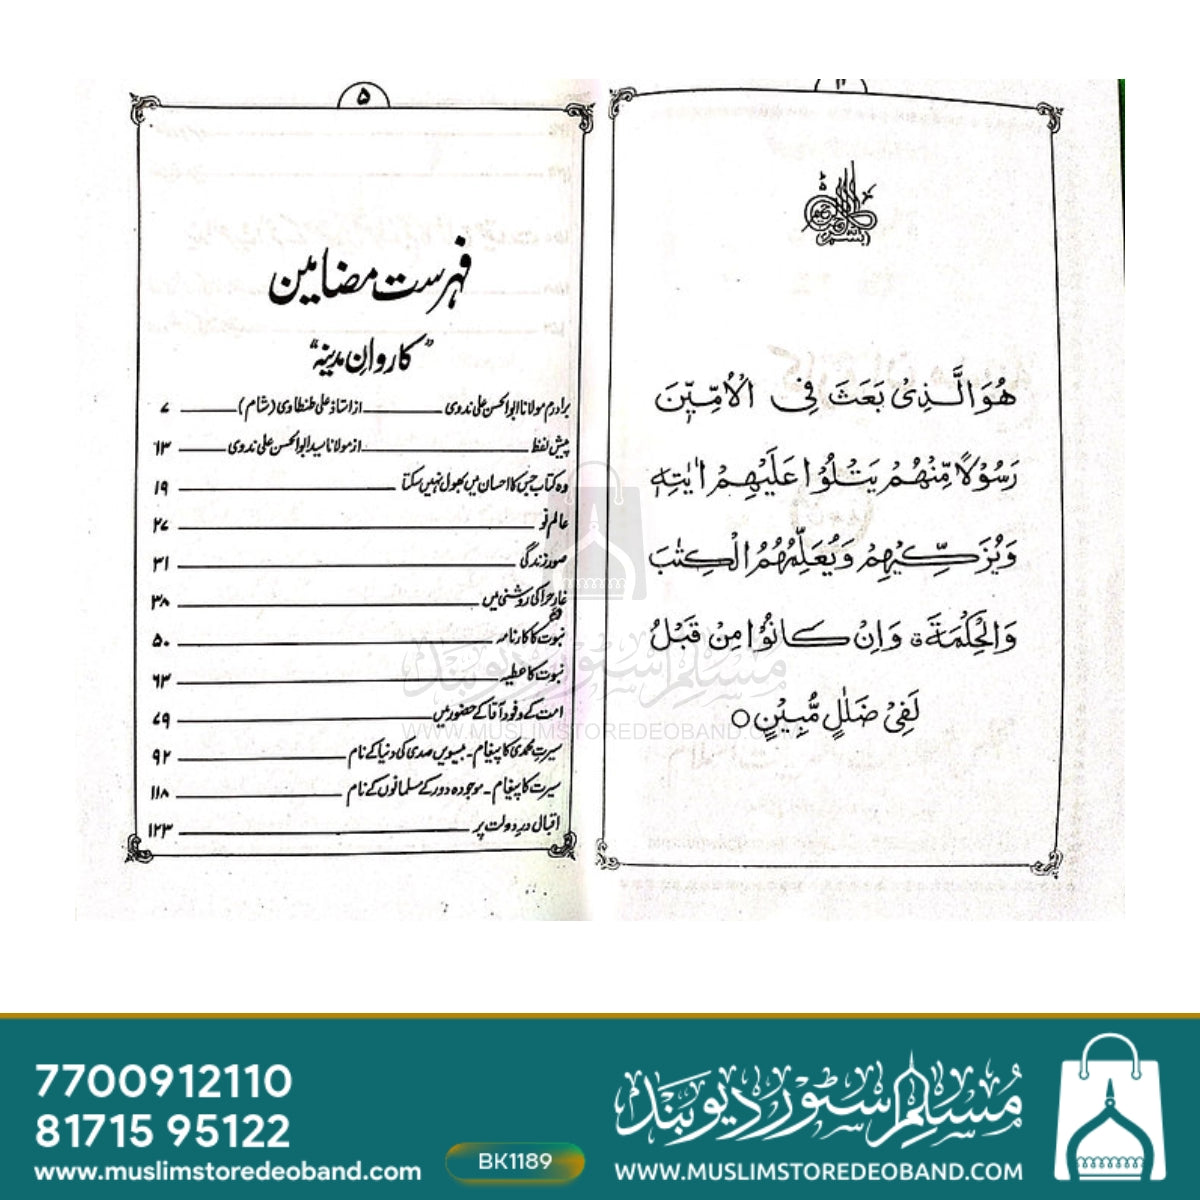 ۴
هُوَ الَّذِیْ بَعَثَ فِی الْاُمِّیّٖنَ
رَسُوْلًا مِّنْهُمْ یَتْلُوْا عَلَیْهِمْ اٰیٰتِهٖ
وَیُزَکِّیْهِمْ وَیُعَلِّمُهُمُ الْکِتٰبَ
وَالْحِکْمَةَ ۃ وَاِنْ کَانُوْا مِنْ قَبْلُ
لَفِیْ ضَلٰلٍ مُّبِیْنٍ ○
۵
فہرست مضامین
”کاروانِ مدینہ“
برادرم مولانا ابوالحسن علی ندوی ــــ از استاذ علی طنطاوی (شام) ــــ ۷
پیش لفظ ــــ از مولانا سید ابوالحسن علی ندوی ــــ ۱۳
وہ کتاب جس کا احسان میں بھول نہیں سکتا ــــ ۱۹
عالم نو ــــ ۲۷
صور زندگی ــــ ۳۱
غار حرا کی روشنی میں ــــ ۳۸
نبوت کا کارنامہ ــــ ۵۰
نبوت کا عطیہ ــــ ۶۳
امت کے وفود آقا کے حضور میں ــــ ۷۹
سیرت محمدی کا پیغام ۔ بیسویں صدی کی دنیا کے نام ــــ ۹۲
سیرت کا پیغام ۔ موجودہ دور کے مسلمانوں کے نام ــــ ۱۱۸
اقبال در دولت پر ــــ ۱۲۳
مسلم سٹور دیوبند
WWW.MUSLIMSTOREDEOBAND.COM
7700912110
81715 95122
www.muslimstoredeoband.com
BK1189
مسلم سٹور دیوبند
WWW.MUSLIMSTOREDEOBAND.COM